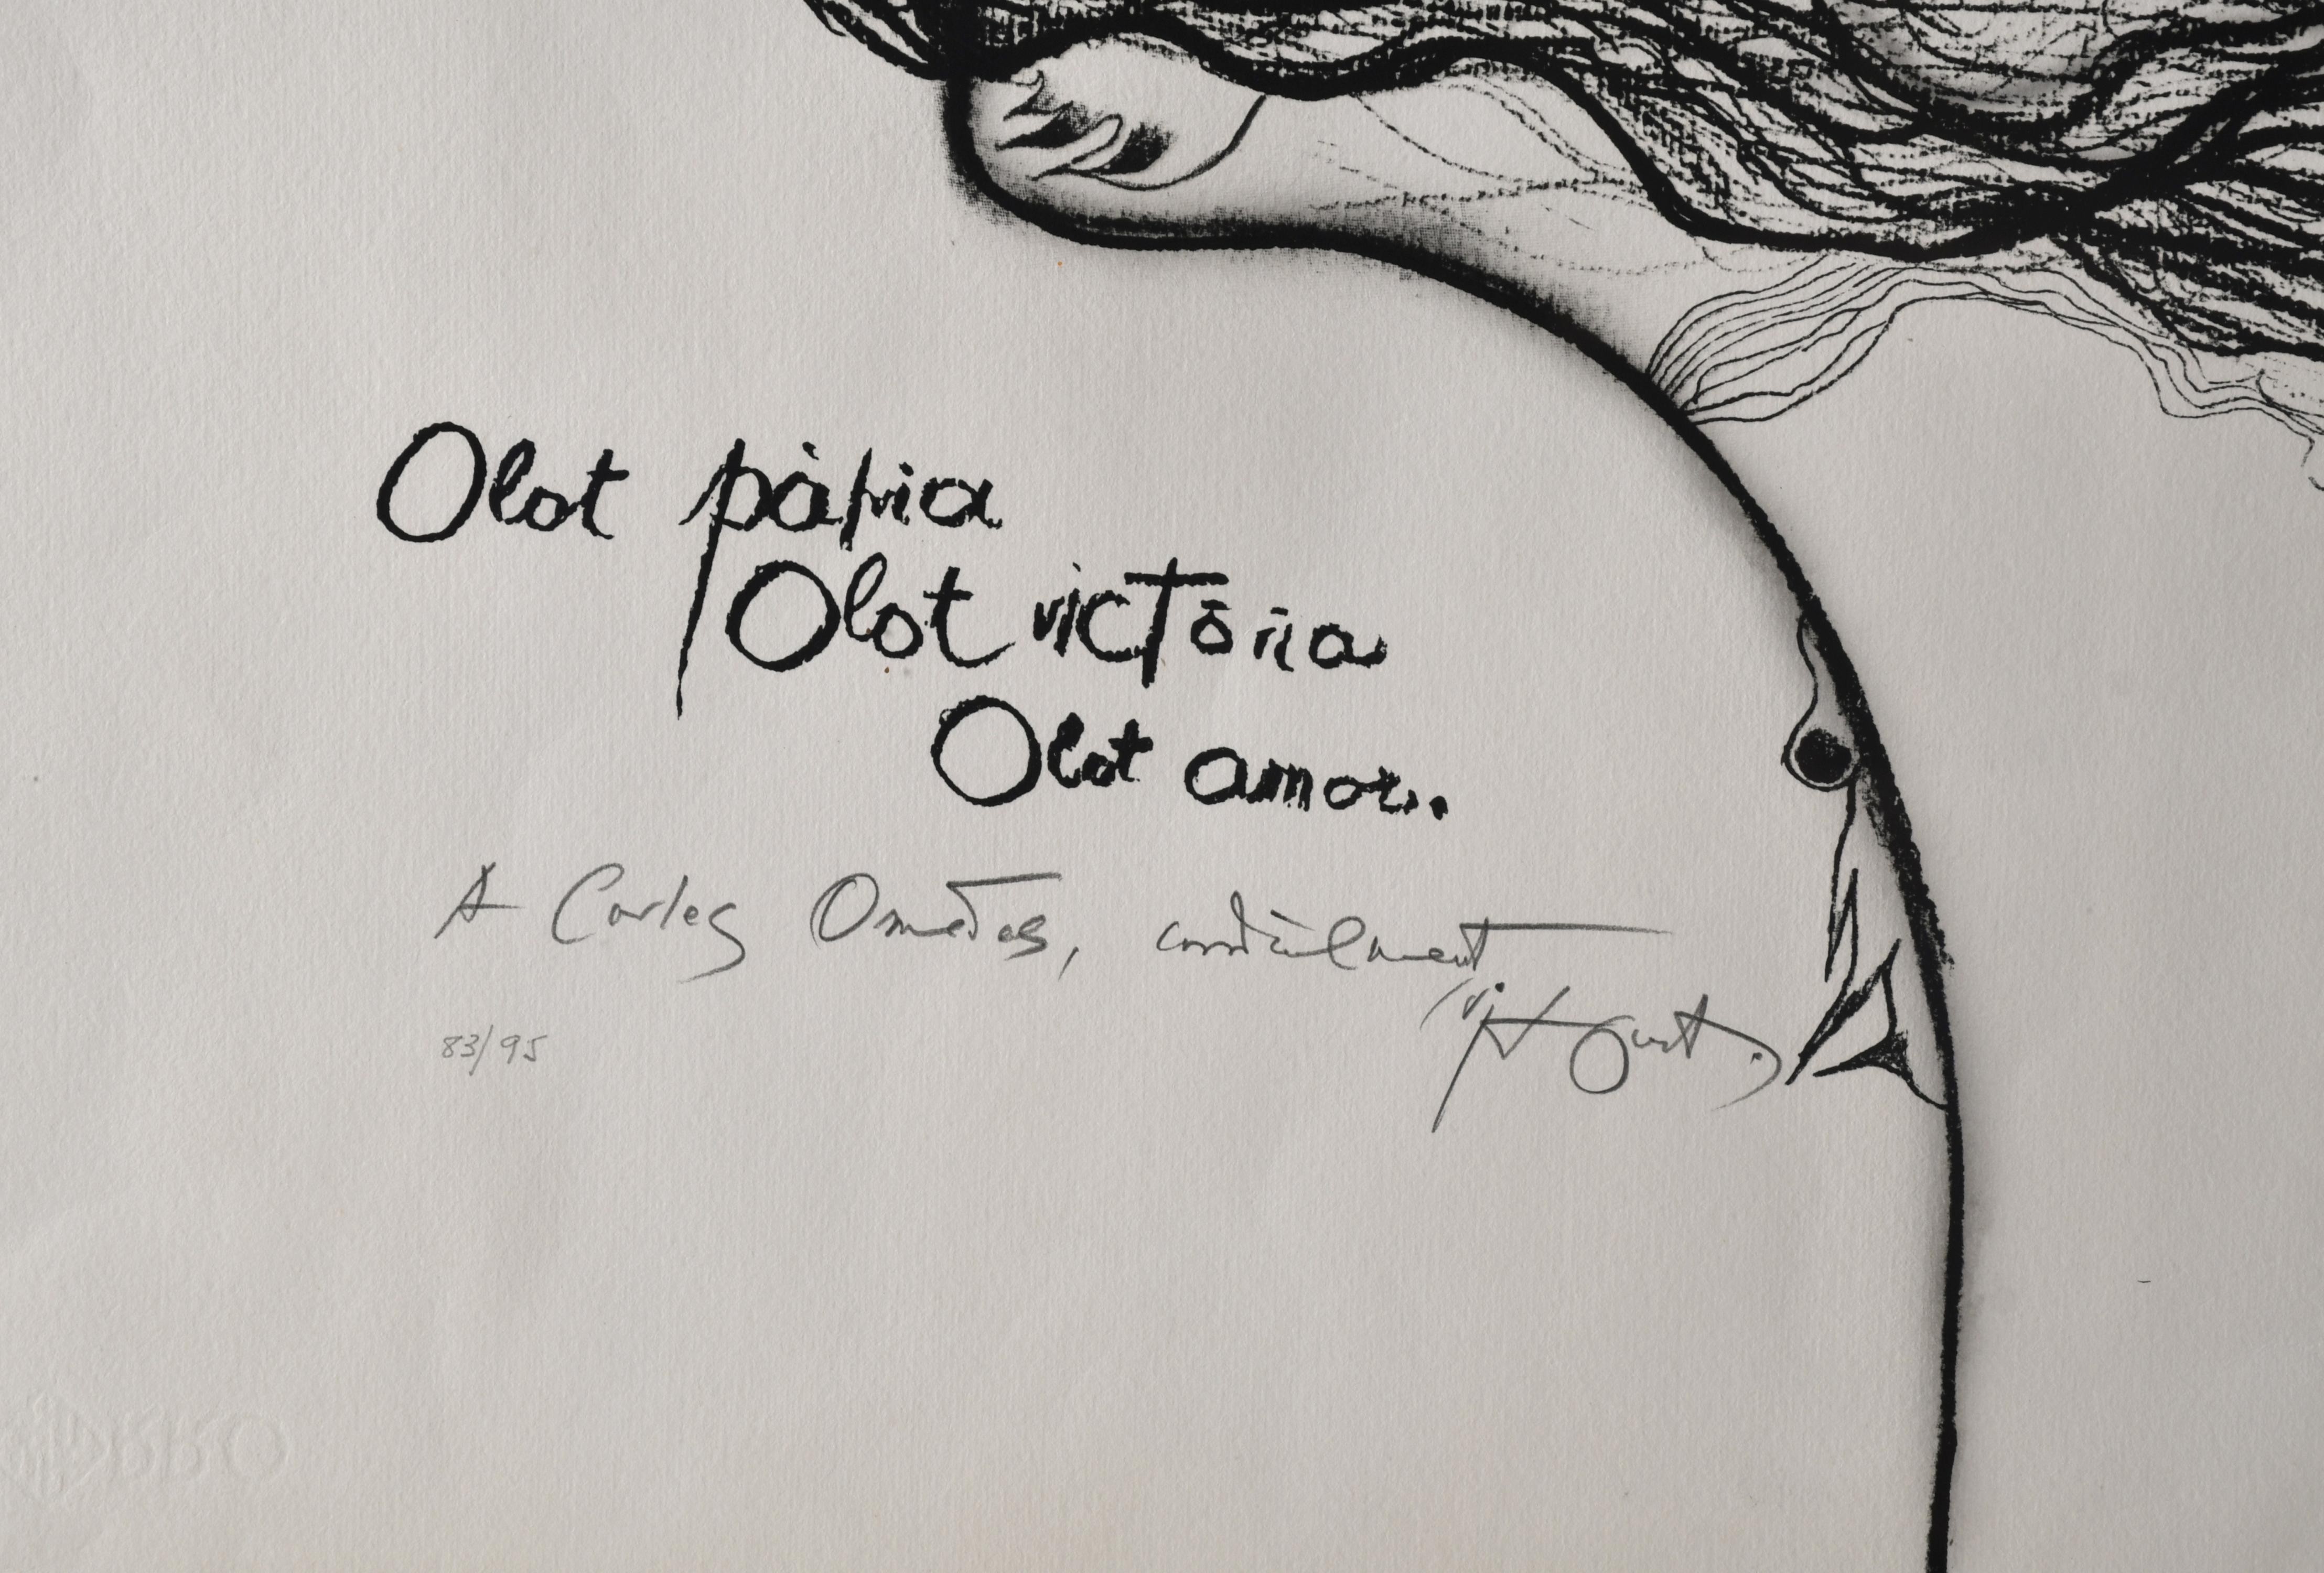 Olot pàtria
Olot victòria
Olot amor..
A Carles Omedes, cordialment
83/95